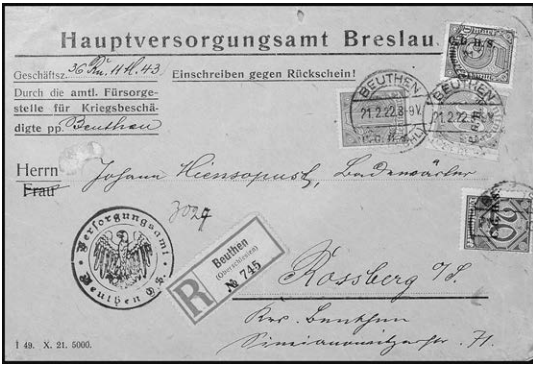 Hauptversorgungsamt Breslau.
Geschäftsz. 36 Kn. 11 Kl. 43 Einschreiben gegen Rückschein!
Durch die amtl. Fürsorge-
stelle für Kriegsbeschä-
digte pp. Beuthen
BEUTHEN
21.2.22.8-9V.
BEUTHEN
21.2.22.8-9V
C.G.H.S.
Herrn Johann
Frau
3029
Versorgungsamt
Beuthen O.S.
R
Beuthen
(Oberschlesien)
№ 745
20
Rossberg O/S.
Krs. Beuthen
71.
I 49. X. 21. 5000.